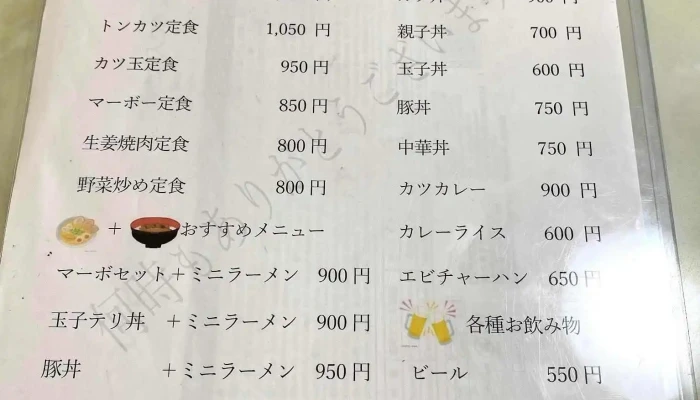 トンカツ定食 1,050 円
カツ玉定食 950 円
マーボー定食 850 円
生姜焼肉定食 800 円
野菜炒め定食 800 円
+ おすすめメニュー
マーボセット+ミニラーメン 900 円
玉子テリ丼 +ミニラーメン 900 円
豚丼 +ミニラーメン 950 円
親子丼 700 円
玉子丼 600 円
豚丼 750 円
中華丼 750 円
カツカレー 900 円
カレーライス 600 円
エビチャーハン 650 円
各種お飲み物
ビール 550 円
何時もありがとうござい